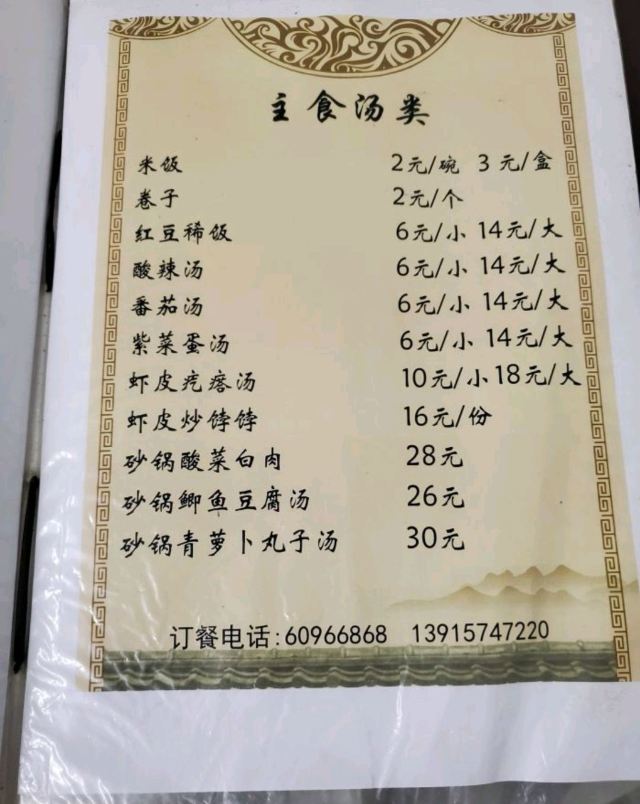 主食汤类
米饭 2元/碗 3元/盒
卷子 2元/个
红豆稀饭 6元/小 14元/大
酸辣汤 6元/小 14元/大
番茄汤 6元/小 14元/大
紫菜蛋汤 6元/小 14元/大
虾皮疙瘩汤 10元/小 18元/大
虾皮炒饽饽 16元/份
砂锅酸菜白肉 28元
砂锅鲫鱼豆腐汤 26元
砂锅青萝卜丸子汤 30元
订餐电话:60966868 13915747220